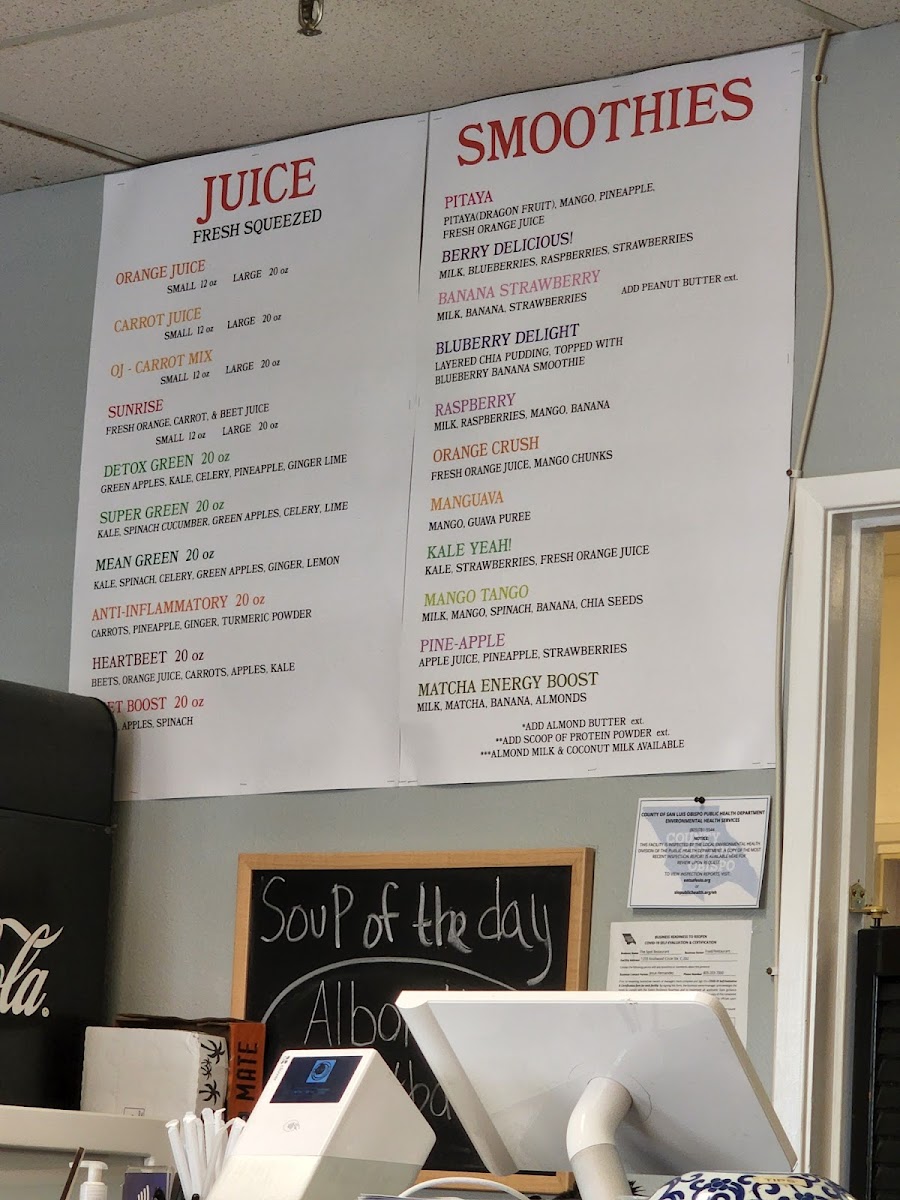 JUICE
FRESH SQUEEZED
ORANGE JUICE
SMALL 12 oz LARGE 20 oz
CARROT JUICE
SMALL 12 oz LARGE 20 oz
OJ - CARROT MIX
SMALL 12 oz LARGE 20 oz
SUNRISE
FRESH ORANGE, CARROT, & BEET JUICE
SMALL 12 oz LARGE 20 oz
DETOX GREEN 20 oz
GREEN APPLES, KALE, CELERY, PINEAPPLE, GINGER LIME
SUPER GREEN 20 oz
KALE, SPINACH CUCUMBER, GREEN APPLES, CELERY, LIME
MEAN GREEN 20 oz
KALE, SPINACH, CELERY, GREEN APPLES, GINGER, LEMON
ANTI-INFLAMMATORY 20 oz
CARROTS, PINEAPPLE, GINGER, TURMERIC POWDER
HEARTBEET 20 oz
BEETS, ORANGE JUICE, CARROTS, APPLES, KALE
BOOST 20 oz
APPLES, SPINACH
SMOOTHIES
PITAYA
PITAYA(DRAGON FRUIT), MANGO, PINEAPPLE,
FRESH ORANGE JUICE
BERRY DELICIOUS!
MILK, BLUEBERRIES, RASPBERRIES, STRAWBERRIES
BANANA STRAWBERRY
MILK, BANANA, STRAWBERRIES ADD PEANUT BUTTER ext.
BLUBERRY DELIGHT
LAYERED CHIA PUDDING, TOPPED WITH
BLUEBERRY BANANA SMOOTHIE
RASPBERRY
MILK, RASPBERRIES, MANGO, BANANA
ORANGE CRUSH
FRESH ORANGE JUICE, MANGO CHUNKS
MANGUAVA
MANGO, GUAVA PUREE
KALE YEAH!
KALE, STRAWBERRIES, FRESH ORANGE JUICE
MANGO TANGO
MILK, MANGO, SPINACH, BANANA, CHIA SEEDS
PINE-APPLE
APPLE JUICE, PINEAPPLE, STRAWBERRIES
MATCHA ENERGY BOOST
MILK, MATCHA, BANANA, ALMONDS
*ADD ALMOND BUTTER ext.
**ADD SCOOP OF PROTEIN POWDER ext.
***ALMOND MILK & COCONUT MILK AVAILABLE
COUNTY OF SAN LUIS OBISPO PUBLIC HEALTH DEPARTMENT
ENVIRONMENTAL HEALTH SERVICES
NOTICE:
THIS FACILITY IS INSPECTED BY THE LOCAL ENVIRONMENTAL HEALTH
DIVISION OF THE PUBLIC HEALTH DEPARTMENT. A COPY OF THE MOST
RECENT INSPECTION REPORT IS AVAILABLE HERE FOR
REVIEW UPON REQUEST.
TO VIEW INSPECTION REPORTS, VISIT:
Soup of the day
Albo
BUSINESS READINESS TO REOPEN
COVID-19 SELF-EVALUATION & CERTIFICATION
la.
MATE
TIPS